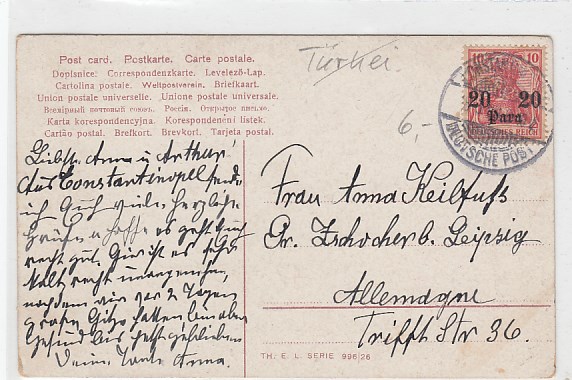 Post card. Postkarte. Carte postale.
Dopisnice: Correspondenzkarte. Levelező-Lap.
Cartolina postal. Weltpostverein. Briefkaart.
Union postale universelle. Unione postale universale.
Всемірный почтовый союзъ. Россія. Открытое письмо.
Karta korespondencyjna. Korespondenčni listek.
Cartão postal. Brefkort. Brevkort. Tarjeta postal.
Türkei.
6,-
10
20 20
Para
DEUTSCHES REICH
DEUTSCHE POST
Liebste Anna u. Arthur!
Aus Constantinopel sende
ich Euch viele herzliche
Grüße hoffe es geht Euch
recht gut. Hier ist es sehr
kalt recht unangenehm,
nachdem wir vor 2 Tagen
große Hitze hatten
Gesund bis jetzt geblieben
Deine Tante Anna.
Frau Anna Keilfuss
Gr. Zschocher b. Leipzig
Allemagne
Trifft Str 36.
TH. E. L. SERIE 996/26